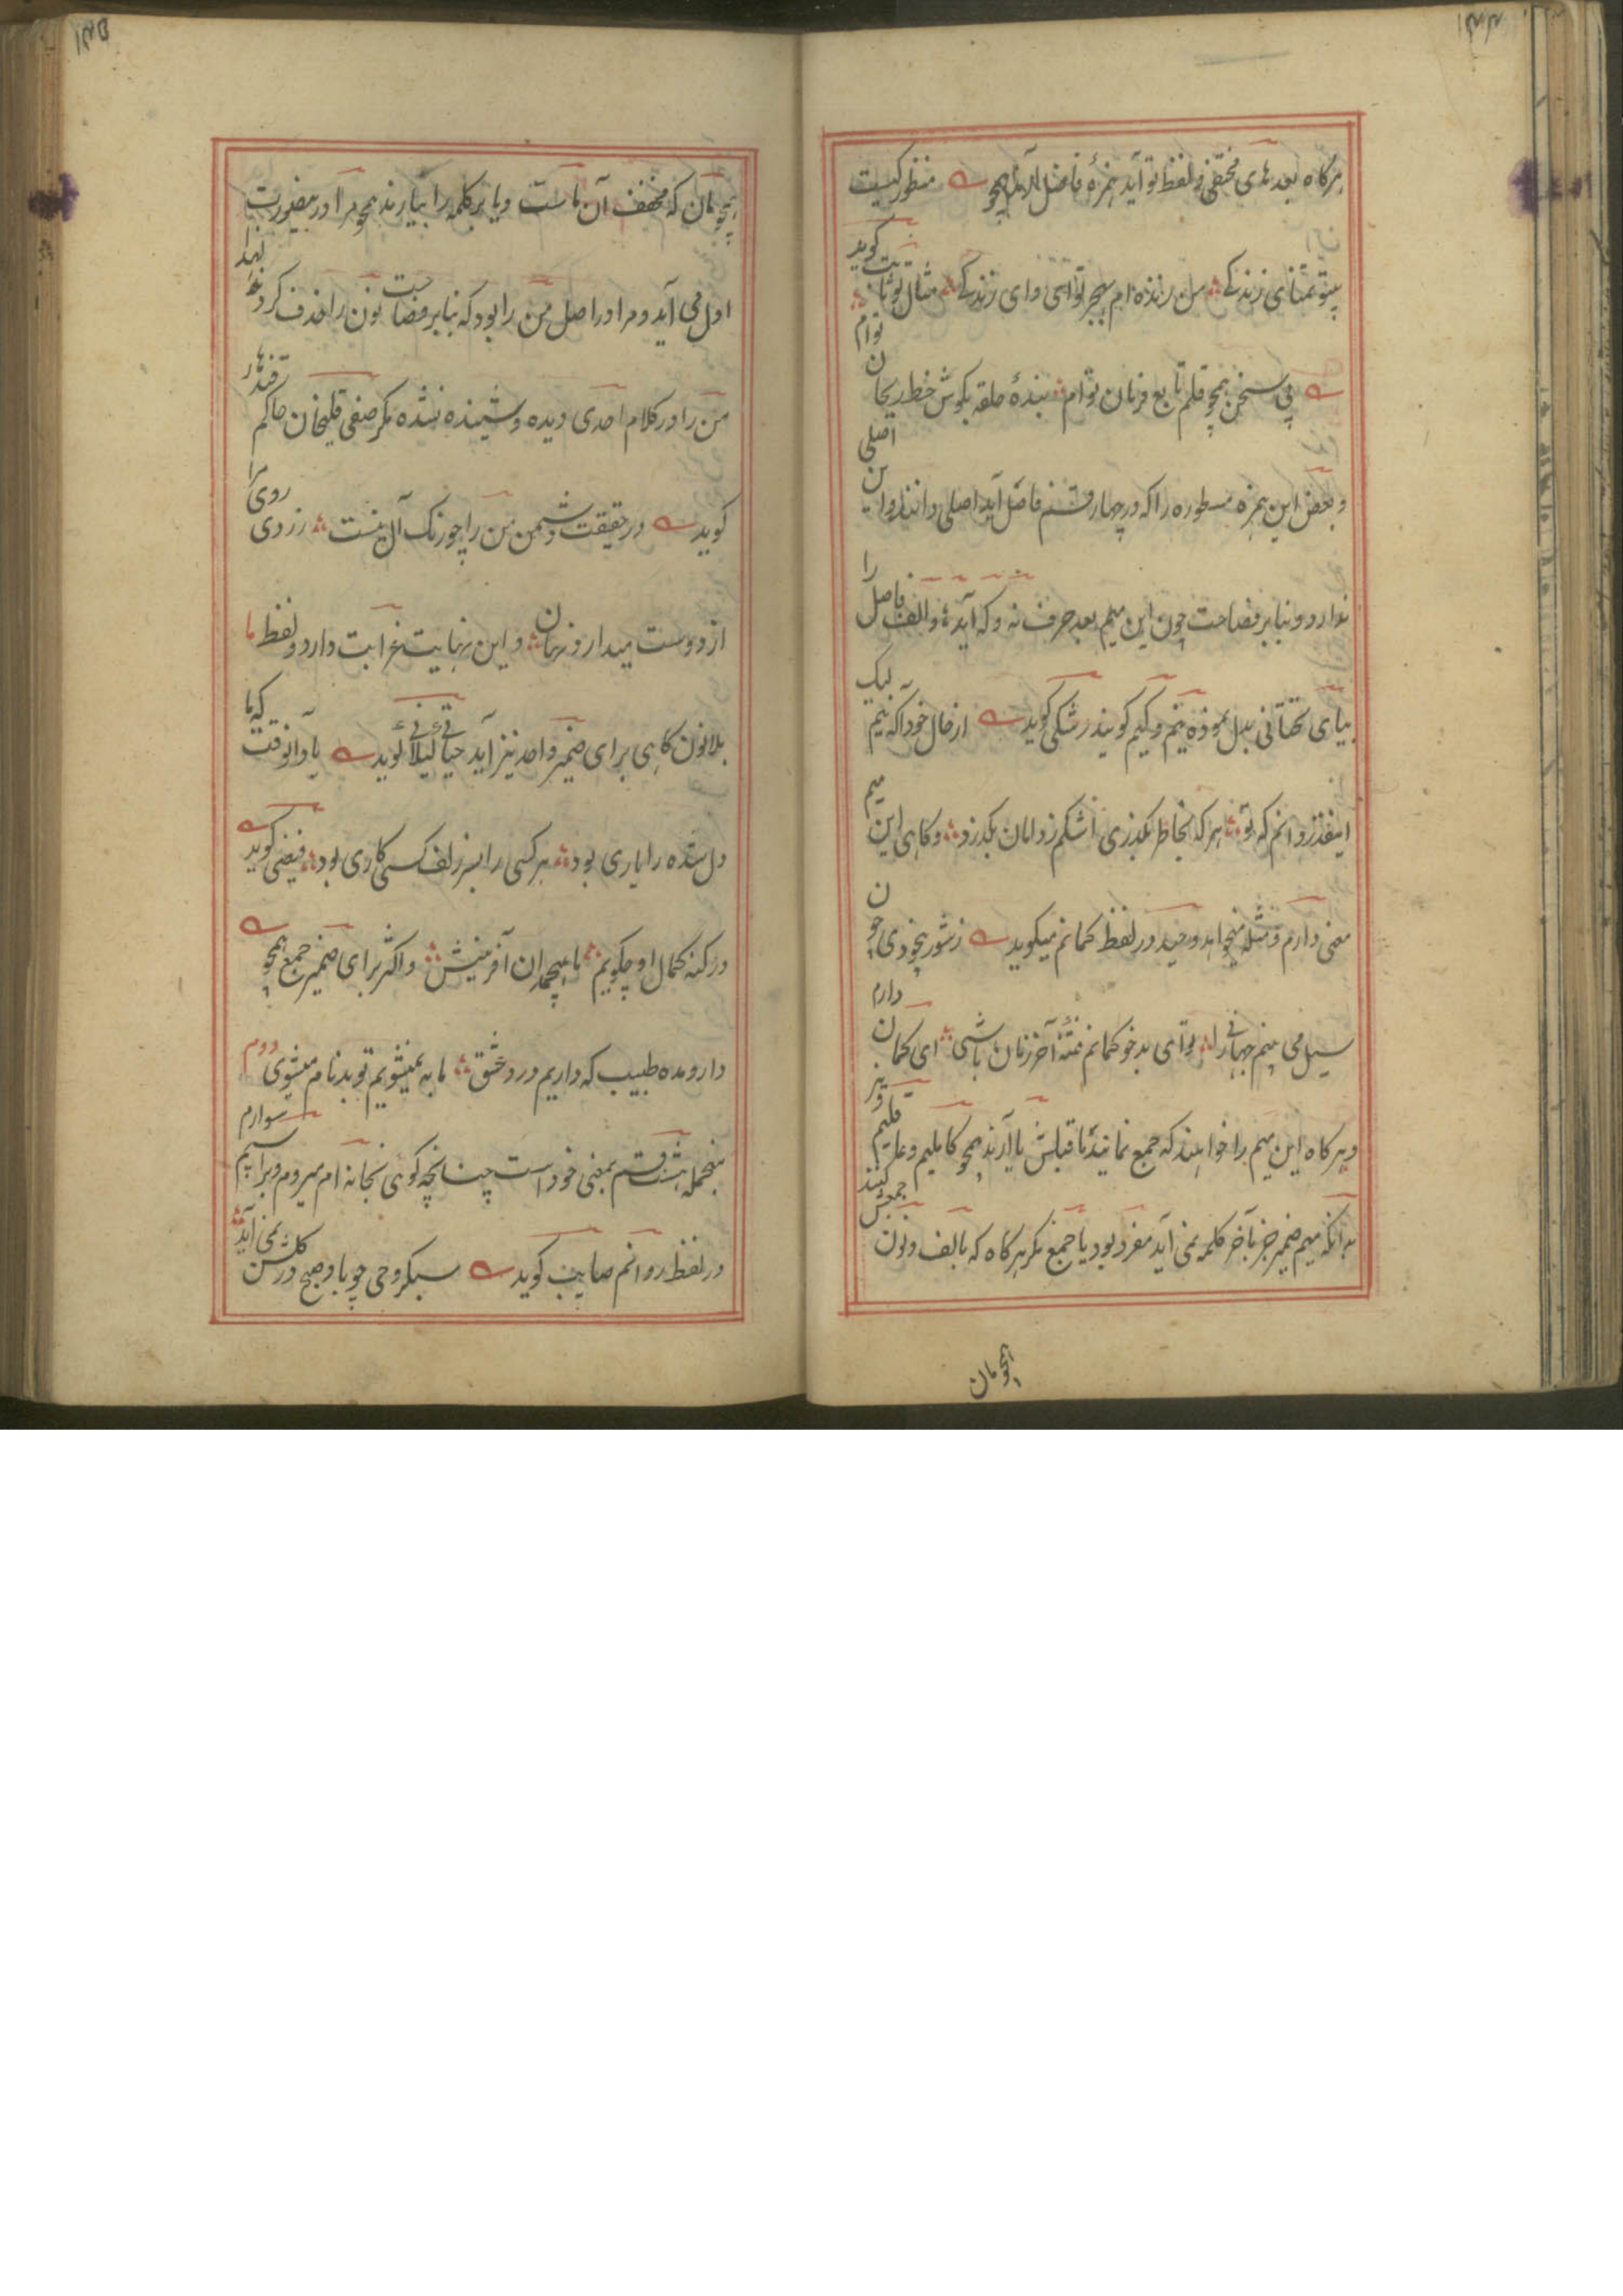 ۱۴۴
هرگاه بعد های مختفی و لفظ تو آید همزه فاصل آرند همچو منظر کیست
گوید
بیتو تمنای زندگی من زنده ام بهجر تو ای وای زندگی مثال تو ثابت
توام
پی سخن همچو قلم تابع فرمان توام بنده حلقه بگوش خط ریحان
و بعض این همزه مسطوره را که در چهار قسم فاصل آید اصلی دانند و این اصلی
ندارد و بنابر فصاحت چون این میم بعد حرف نه و که آید و الف فاصل را
بیای تحتانی بدل نموده نیم و کیم گویند رشکی گوید از حال خود آگه نیم لیک
اینقدر دانم که تو هر گه بخاطر بگذری اشکم ز دامان بگذرد و گاهی این میم
معنی دارم و مثله میخواهد وحید در لفظ کمانم میگوید ز شور بیخودی چون
سیل می بینم جهانی را تو ای بدخو کمانم فتنه آخر زمان باشی ای کمان دارم
و هرگاه این میم را خواهند که جمع نمایند یا قبلش یا آرند همچو کاملیم و علیم و قلیم
جمعش کنند
بدانکه میم ضمیر جز بآخر کلمه نمی آید مفرد بود یا جمع مگر هرگاه که بالف و نون
همچو مان
۱۴۵
همچو مان که مخفف آن ماست و یا بر کلمه را بیارند همچو مرا درینصورت با لهذا
اول می آید و مرا در اصل من را بود که بنابر فصاحت نون را حذف کردند
من را در کلام احدی دیده و شنیده نشده مگر صفی قلیخان حاکم قندهار
گوید در حقیقت دشمن من را چو رنگ آل نیست زردی روی مرا
از دوست میدارد نهان و این نهایت غرابت دارد و لفظ ما
بلانون گاهی برای ضمیر واحد نیز آید حیاتی گیلانی گوید یاد آنوقت که ما
دل شده را یاری بود هر کسی را بسر زلف کسی کاری بود فیضی گوید
در کنه کمال او چگویم ما هیچمدان آفرینش و اکثر برای ضمیر جمع همچو
دارو مده طبیب که داریم درد عشق ما به نمیشویم تو بدنام میشوی دوم
سوارم
منجمله هشت قسم بمعنی خود است چنانچه گوئی بخانه ام میروم و براسپم
نمی آید
در لفظ روانم صایب گوید سبکروحی چو باد صبح در گلشن